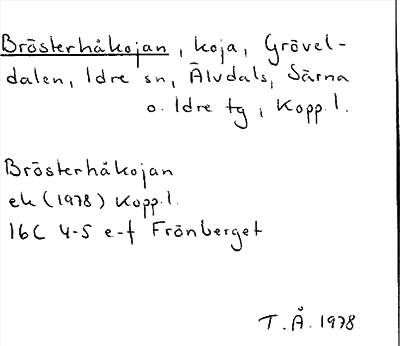 Brösterhåkojan, koja, Grövel-
dalen, Idre sn, Älvdals, Särna
o. Idre tg, Kopp.l.
Brösterhåkojan
ek (1978) Kopp.l.
16C 4-5 e-f Frönberget
T.Å. 1978